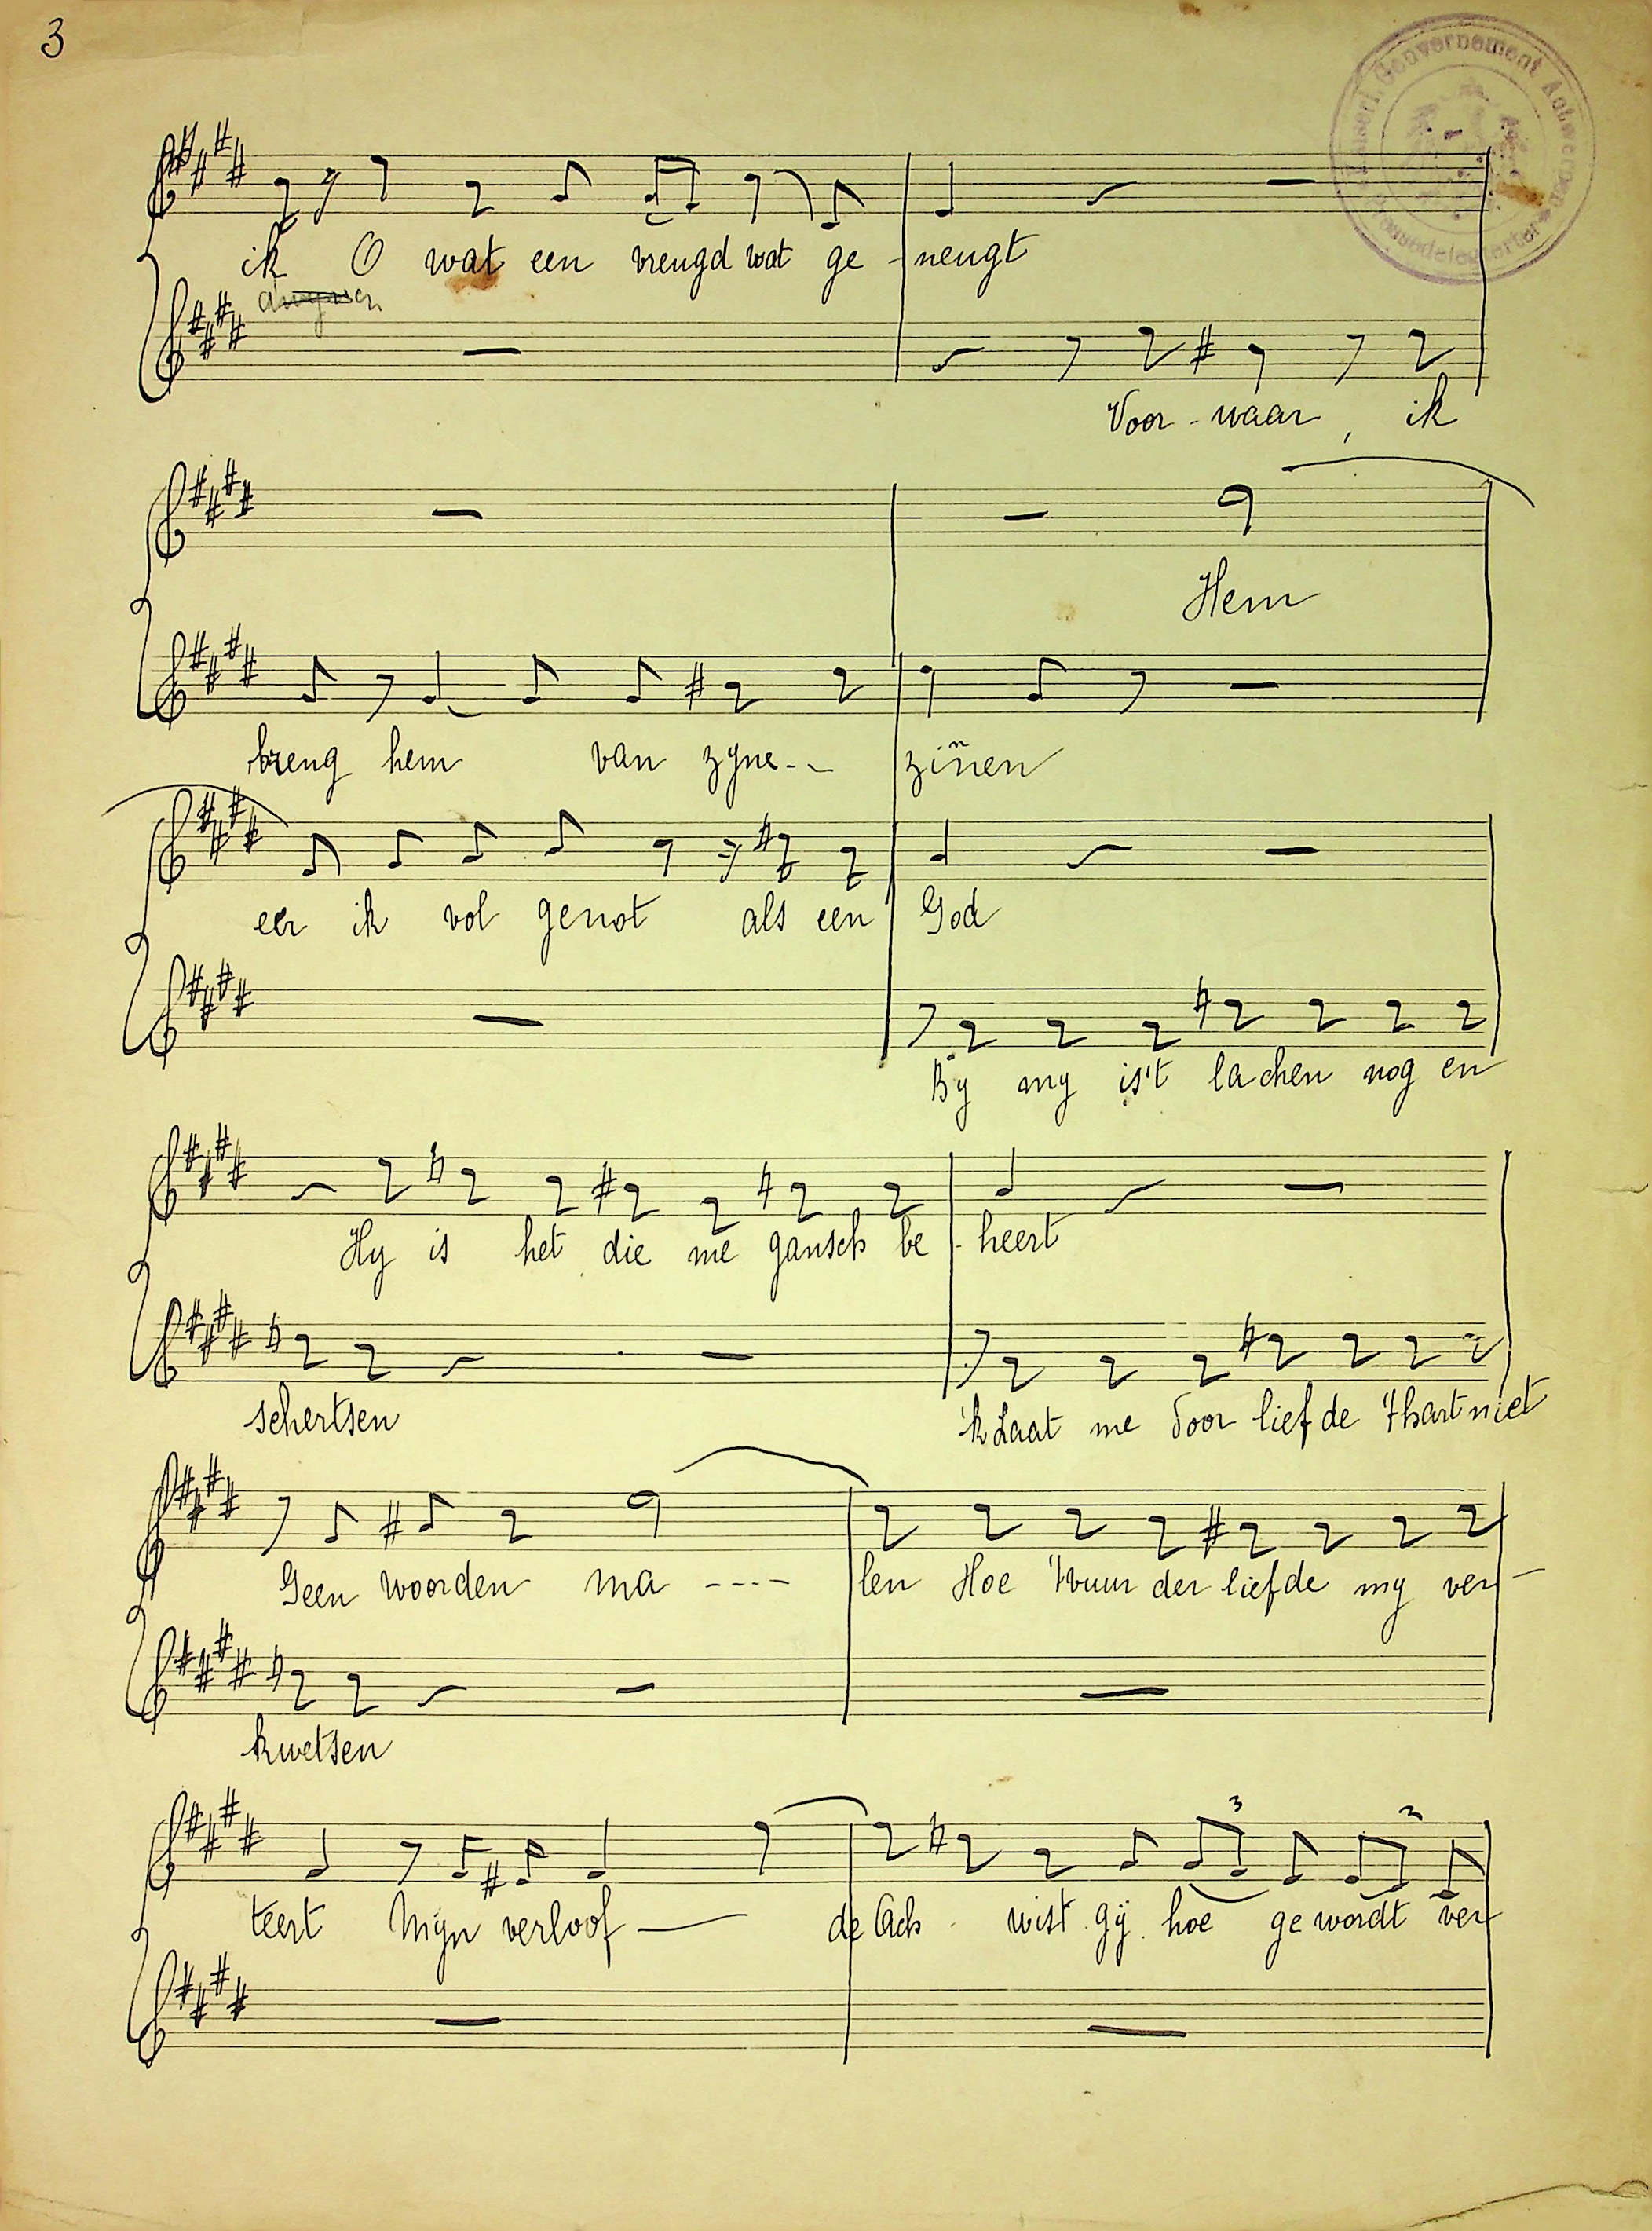 3
Kaiserl. Gouvernement Antwerpen
Pressedelegierter
ik O wat een vreugd wat ge - neugt
Voor - waar, ik
Hem
breng hem van zyne -- zinen
n
eer ik vol genot als een God
By my is't lachen nog en
Hy is het die me gansch be - heert
schertsen 'k Laat me door liefde 't hart niet
Geen woorden ma ---- len Hoe 't vuur der liefde my ver -
kwetsen
3 3
teert Mijn verloof — de Ach wist gij hoe ge wordt ver